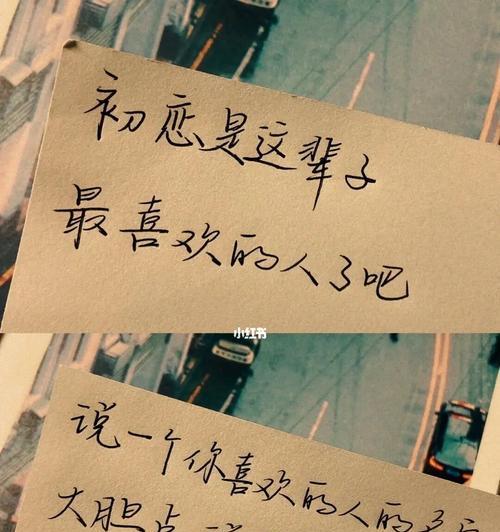 初恋是这辈子
最喜欢的人了吧
小红书
说一个你喜欢的人的名
大胆点